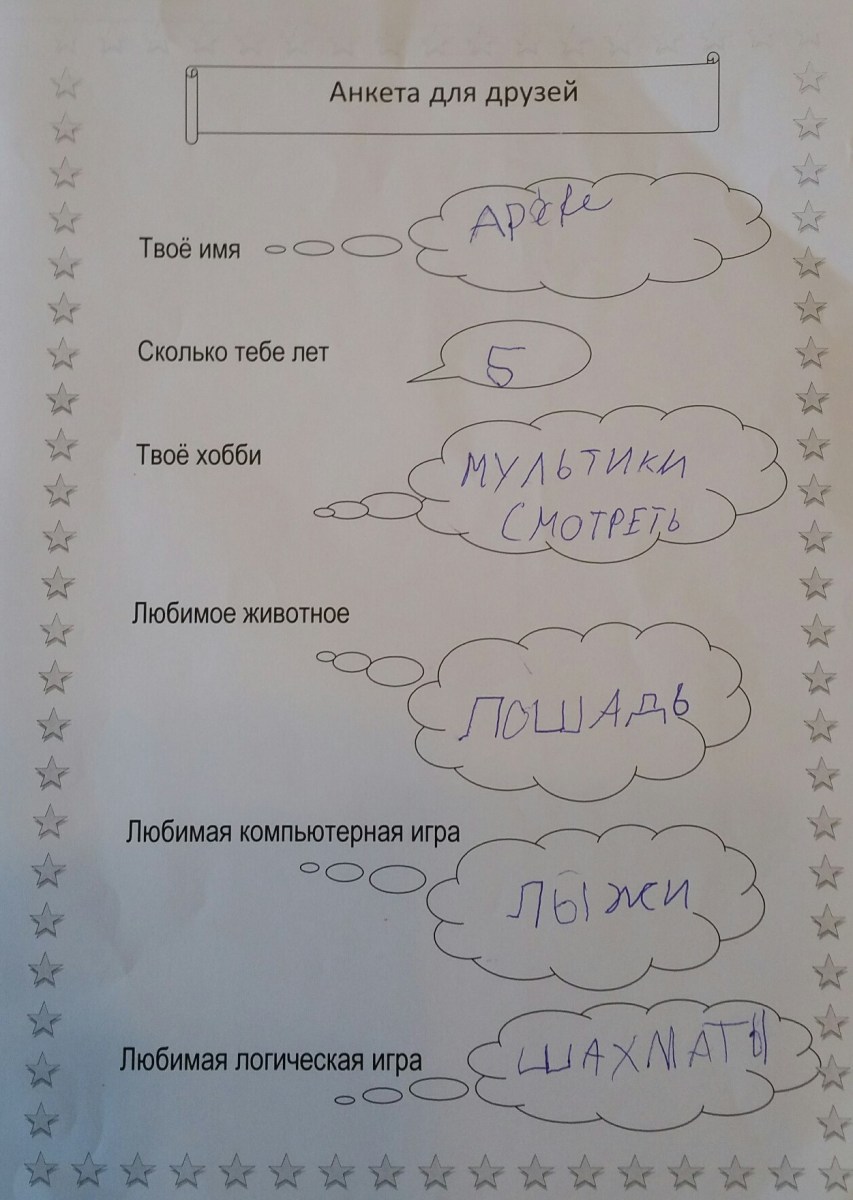 Анкета для друзей
Твоё имя
Сколько тебе лет
5
Твоё хобби
МУЛЬТИКИ
СМОТРЕТЬ
Любимое животное
ЛОШАДЬ
Любимая компьютерная игра
ЛЫЖИ
Любимая логическая игра
ШАХМАТЫ